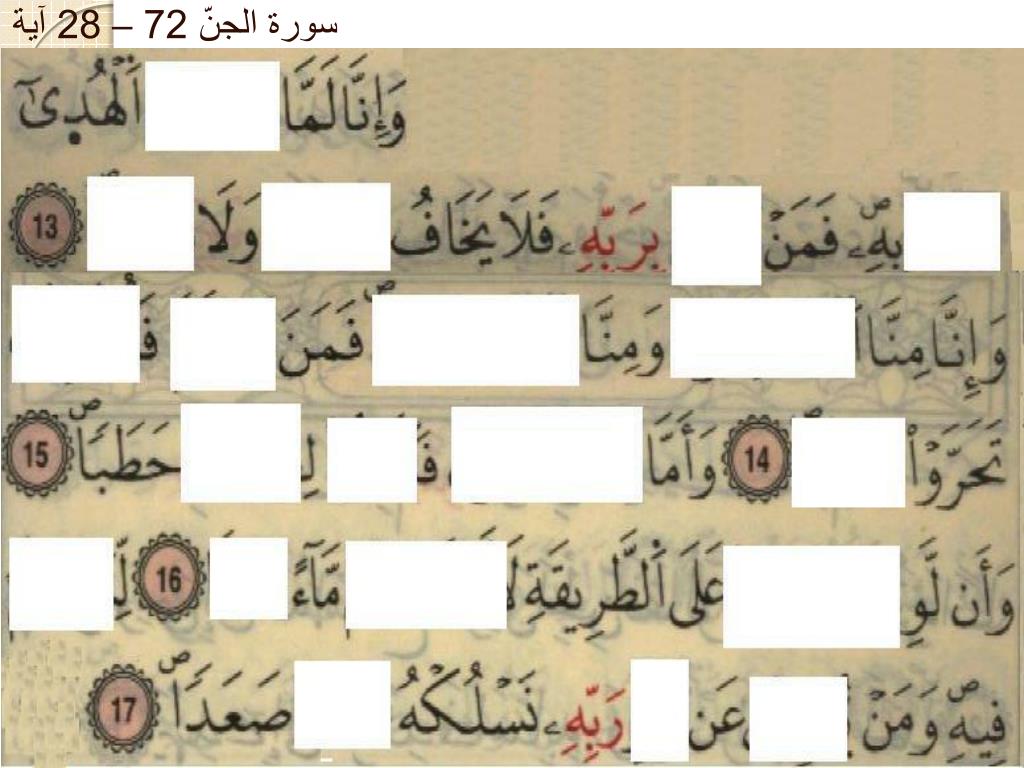 سورة الجنّ 72 – 28 آية
وَإِنَّا لَمَّا اَ۬لْهُد۪ىٰٓ
بِهِۦۖ فَمَنْ بِرَبِّهِۦ فَلَا يَخَافُ وَلَا 13
وَإِنَّا مِنَّا وَمِنَّا فَمَنَ
تَحَرَّوْاْ 14 وَأَمَّا حَطَباٗۖ 15
وَأَن لَّوِ عَلَى اَ۬لطَّرِيقَةِ مَّآءً 16
فِيهِۖ وَمَنْ عَن رَبِّهِۦ نَسْلُكْهُ صَعَداٗۖ 17